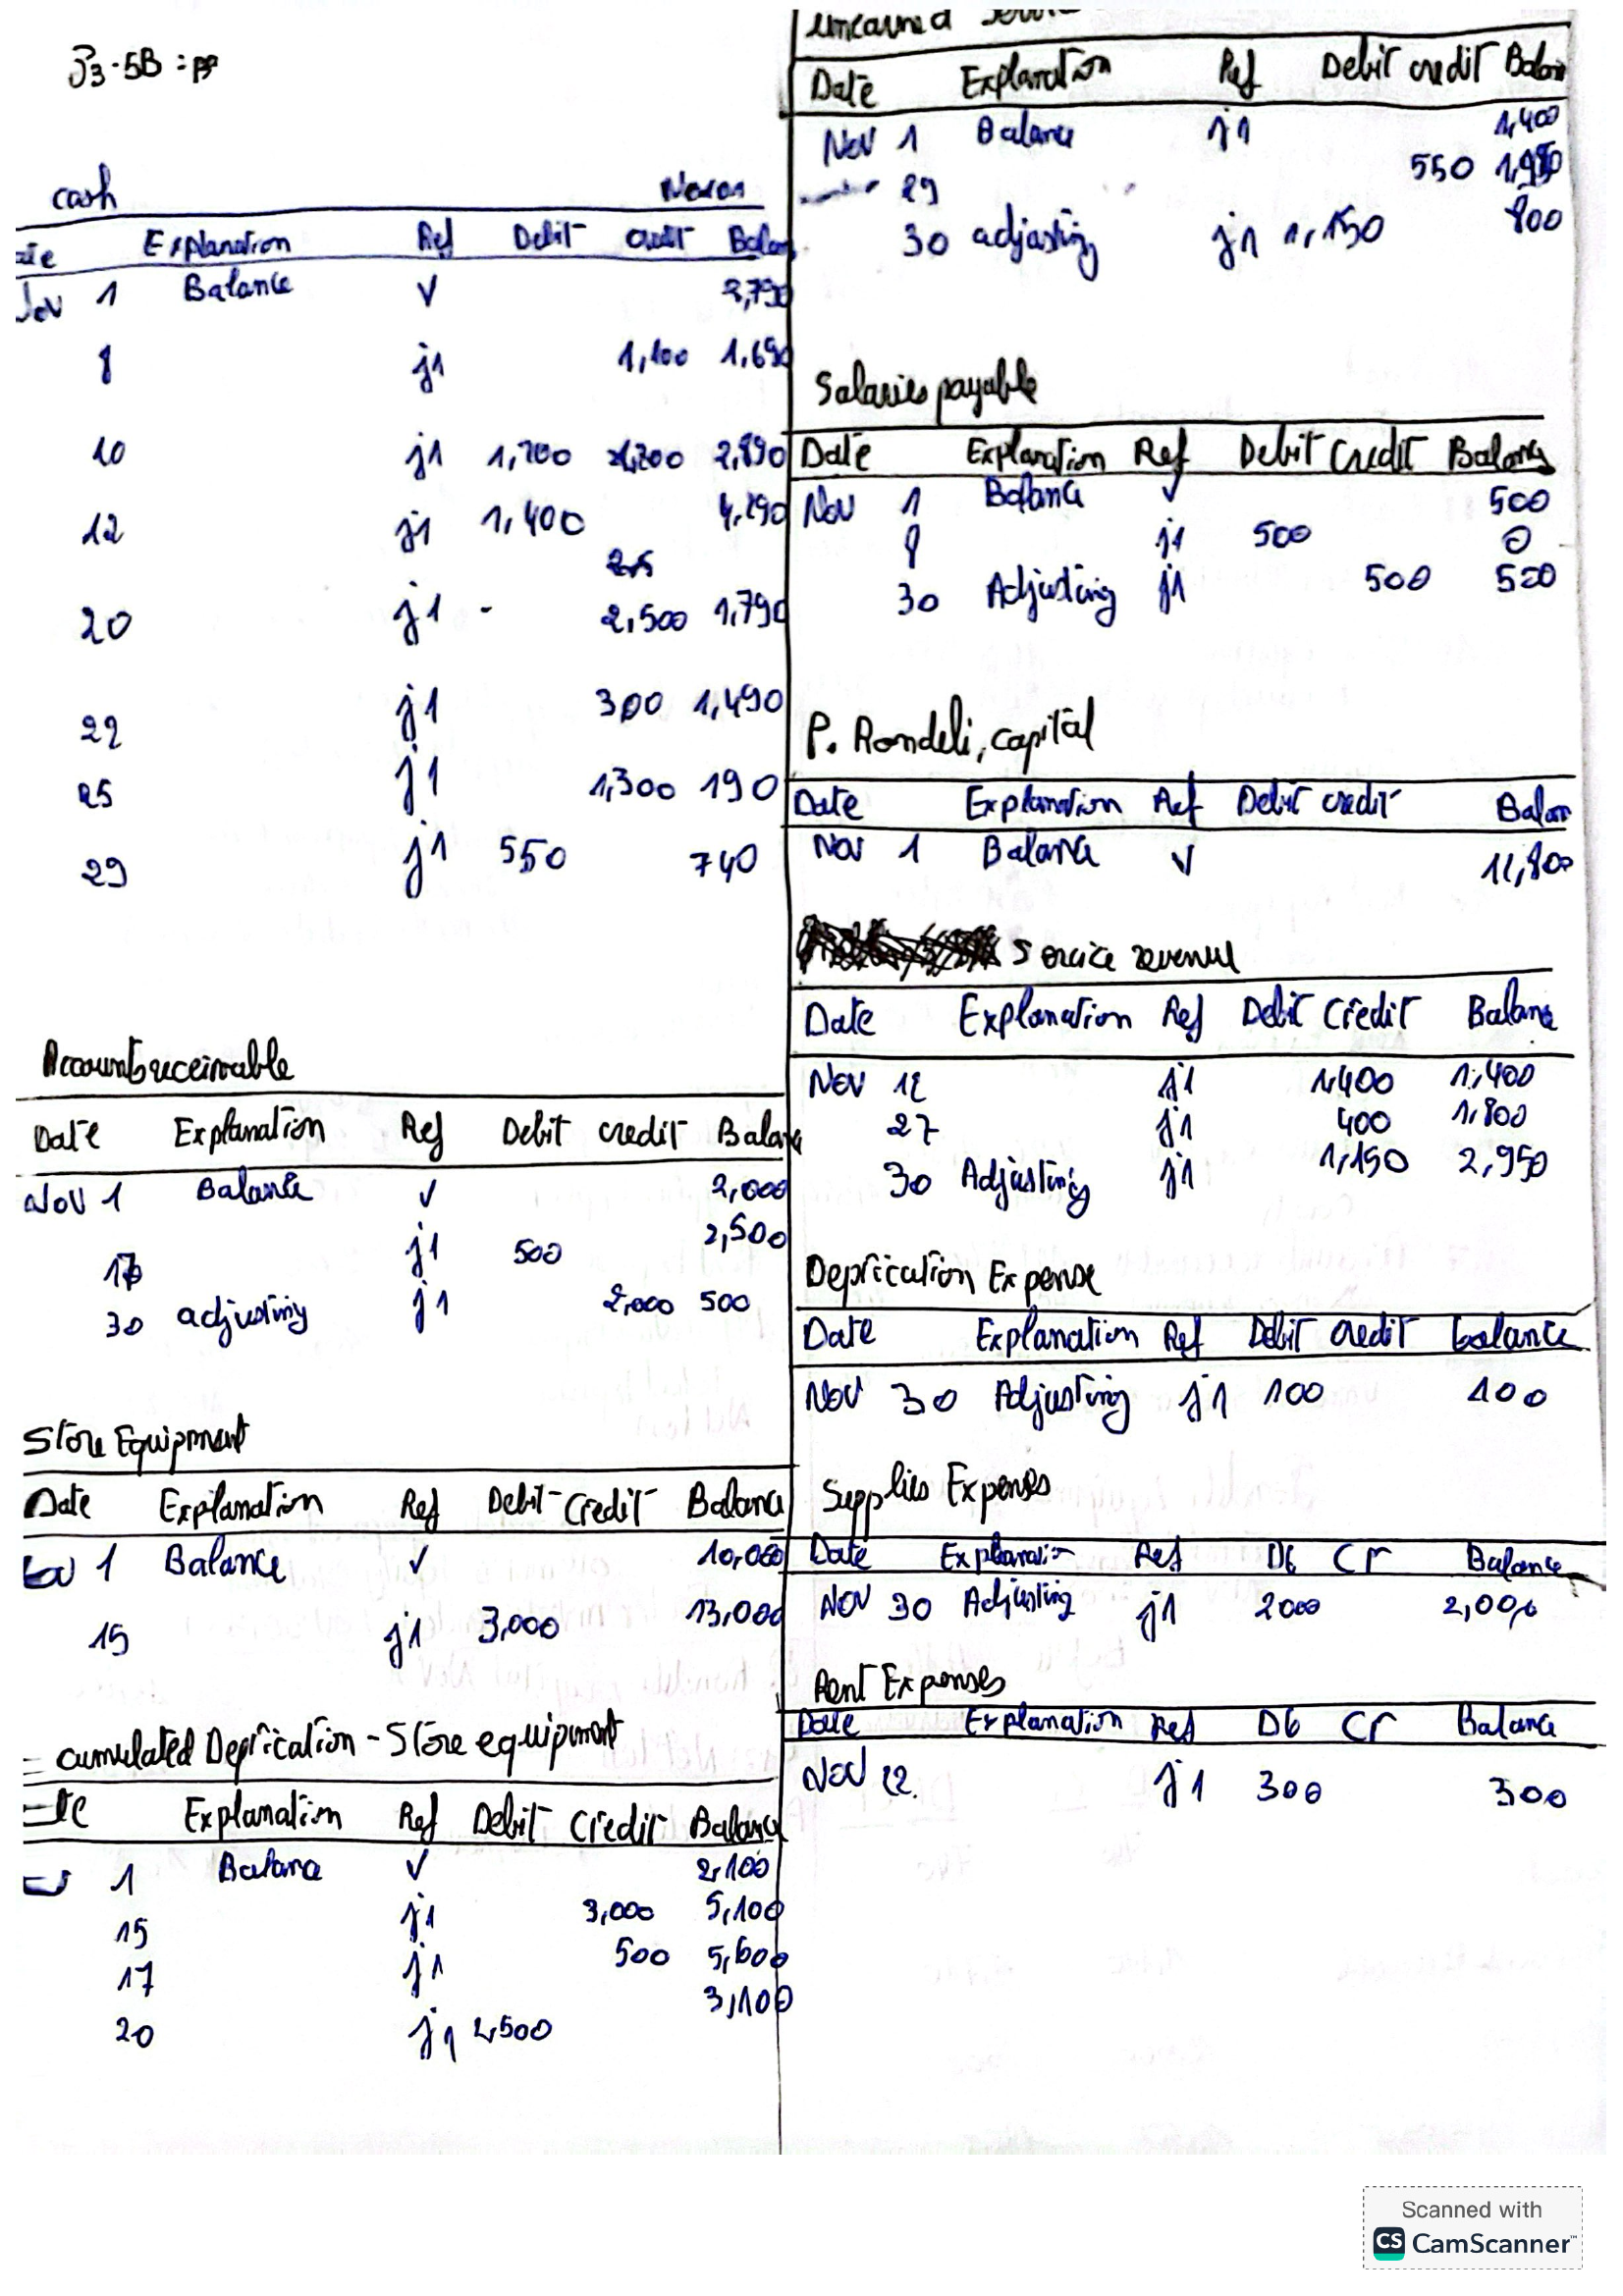 P3-5B
cash
Explanation Ref Debit credit
1 Balance √ 2,790
8 j1 1,100 1,690
10 j1 1,200 2,890
12 j1 1,400 4,290
20 j1 - 2,500 1,790
22 j1 300 1,490
25 j1 1,300 190
29 j1 550 740
Accounts receivable
Date Explanation Ref Debit credit Balance
Nov 1 Balance √ 2,000
17 j1 500 2,500
30 adjusting j1 2,000 500
Store Equipment
Date Explanation Ref Debit Credit Balance
1 Balance √ 10,000
15 j1 3,000 13,000
cumulated Deprication - Store equipment
Explanation Ref Debit Credit Balance
1 Balance √ 2,100
15 j1 3,000 5,100
17 j1 500 5,600
20 j1 2,500 3,100
Date Explanation Ref Debit credit
Nov 1 Balance j1 1,400
29 550
30 adjusting j1 1,150 800
Salaries payable
Date Explanation Ref Debit Credit Balance
Nov 1 Balance √ 500
8 j1 500 0
30 Adjusting j1 500 500
P. Rondeli, capital
Date Explanation Ref Debit credit Balan
Nov 1 Balance √ 11,800
Service revenue
Date Explanation Ref Debit Credit Balance
Nov 12 j1 1,400 1,400
27 j1 400 1,800
30 Adjusting j1 1,150 2,950
Deprication Expense
Date Explanation Ref Debit credit balance
Nov 30 Adjusting j1 100 100
Supplies Expenses
Date Explanation Ref Db Cr Balance
Nov 30 Adjusting j1 2000 2,000
Rent Expenses
Date Explanation Ref Db Cr Balance
Nov 22. j1 300 300
Scanned with
CS CamScanner™